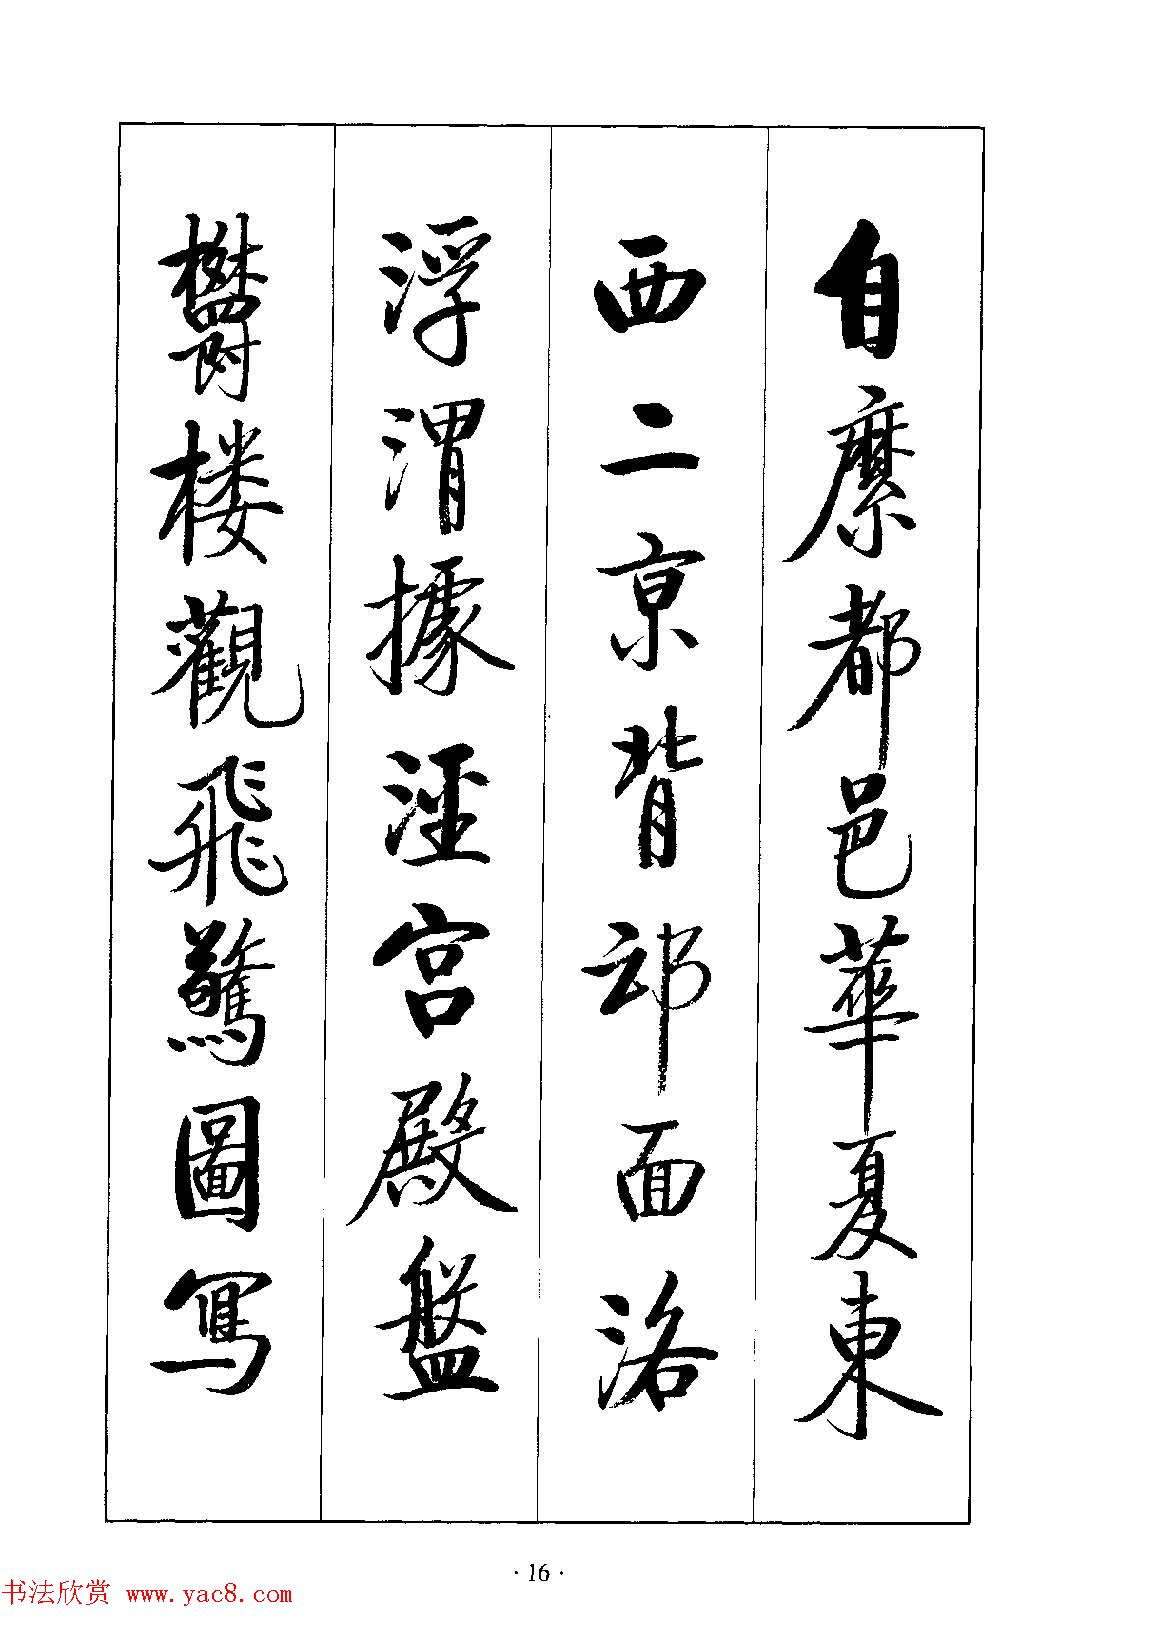 自縻都邑華夏東
西二京背邙面洛
浮渭據涇宫殿盤
欝楼觀飛驚圖寫
·16·
书法欣赏 www.yac8.com